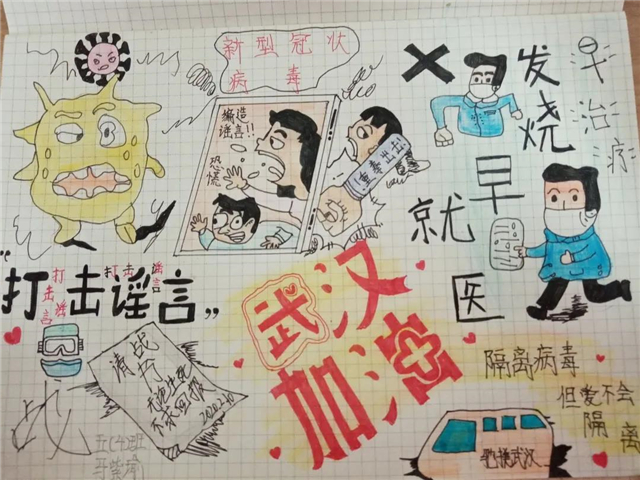 新型冠状
病毒
编造
谣言!!
恐慌
重拳出击
发烧
早治疗
早
就
医
“打击谣言”
打击谣言
打击谣言
武汉
加油
请战
书
无论生死
不求回报
隔离病毒
但爱不会
隔离
驰援武汉
五(4)班